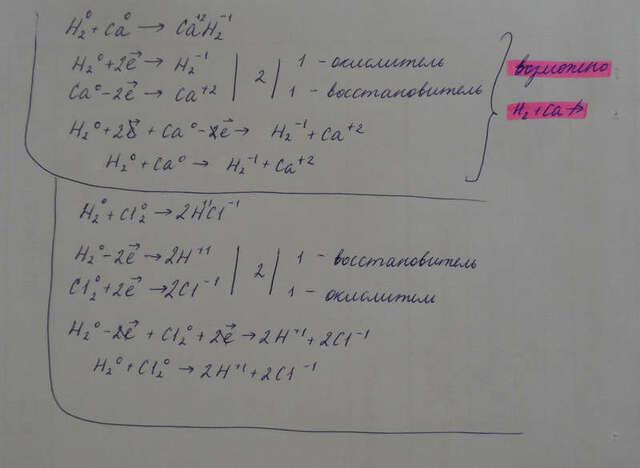 H₂⁰ + Ca⁰ → Ca⁺²H₂⁻¹
H₂⁰ + 2ē → H₂⁻¹ | 2 | 1 - окислитель
Ca⁰ - 2ē → Ca⁺² | | 1 - восстановитель
H₂⁰ + 2ē + Ca⁰ - 2ē → H₂⁻¹ + Ca⁺²
H₂⁰ + Ca⁰ → H₂⁻¹ + Ca⁺²
возможно
H₂ + Ca ↛
H₂⁰ + Cl₂⁰ → 2H⁺¹Cl⁻¹
H₂⁰ - 2ē → 2H⁺¹ | 2 | 1 - восстановитель
Cl₂⁰ + 2ē → 2Cl⁻¹ | | 1 - окислител
H₂⁰ - 2ē + Cl₂⁰ + 2ē → 2H⁺¹ + 2Cl⁻¹
H₂⁰ + Cl₂⁰ → 2H⁺¹ + 2Cl⁻¹